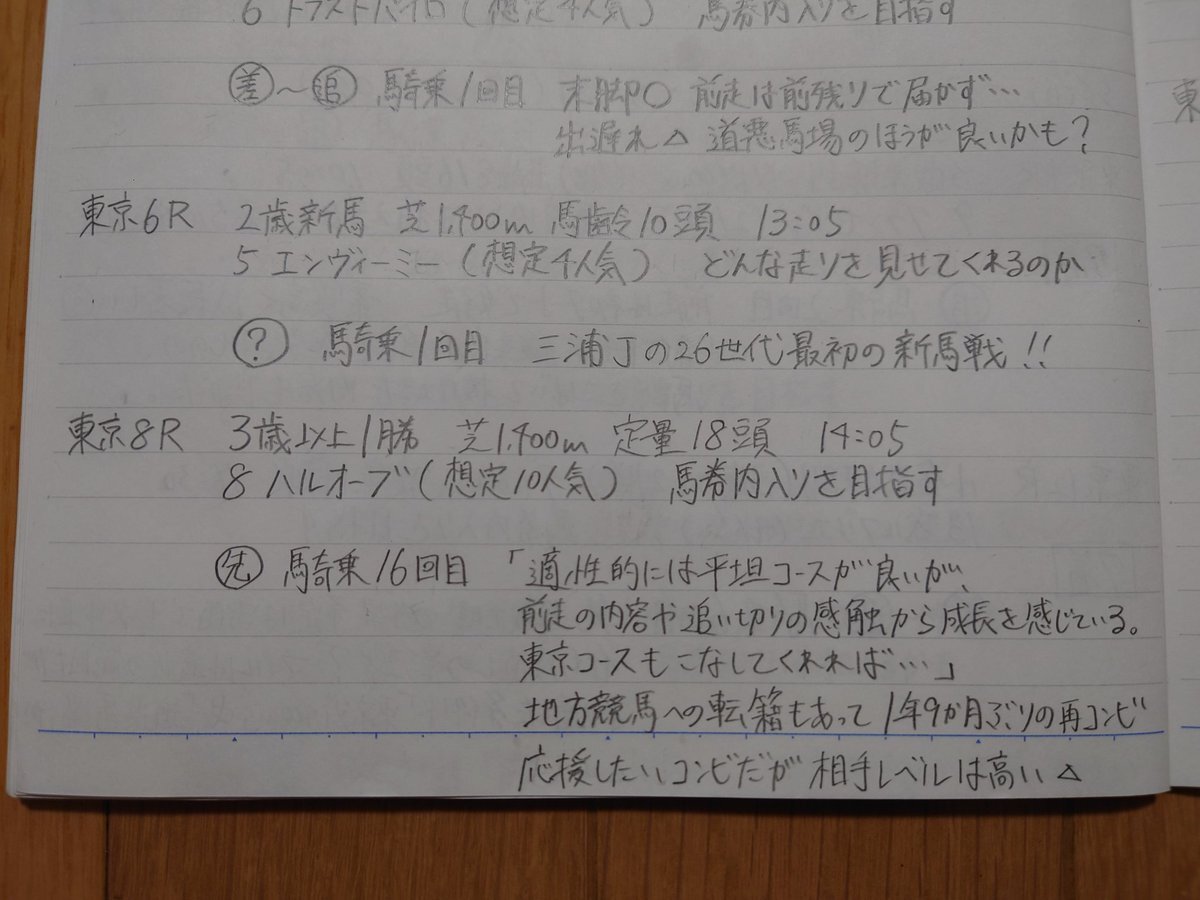 6 トラストパイロ(想定4人気) 馬券内入りを目指す
差〜追 騎乗1回目 末脚○ 前走は前残りで届かず…
出遅れ△ 道悪馬場のほうが良いかも?
東京6R 2歳新馬 芝1,400m 馬齢10頭 13:05
5 エンヴィーミー(想定4人気) どんな走りを見せてくれるのか
? 騎乗1回目 三浦Jの26世代最初の新馬戦!!
東京8R 3歳以上1勝 芝1,400m 定量18頭 14:05
8 ハルオーブ(想定10人気) 馬券内入りを目指す
先 騎乗16回目 「適性的には平坦コースが良いが、
前走の内容や追い切りの感触から成長を感じている。
東京コースもこなしてくれれば…」
地方競馬への転籍もあって1年9か月ぶりの再コンビ
応援したいコンビだが相手レベルは高い△
東